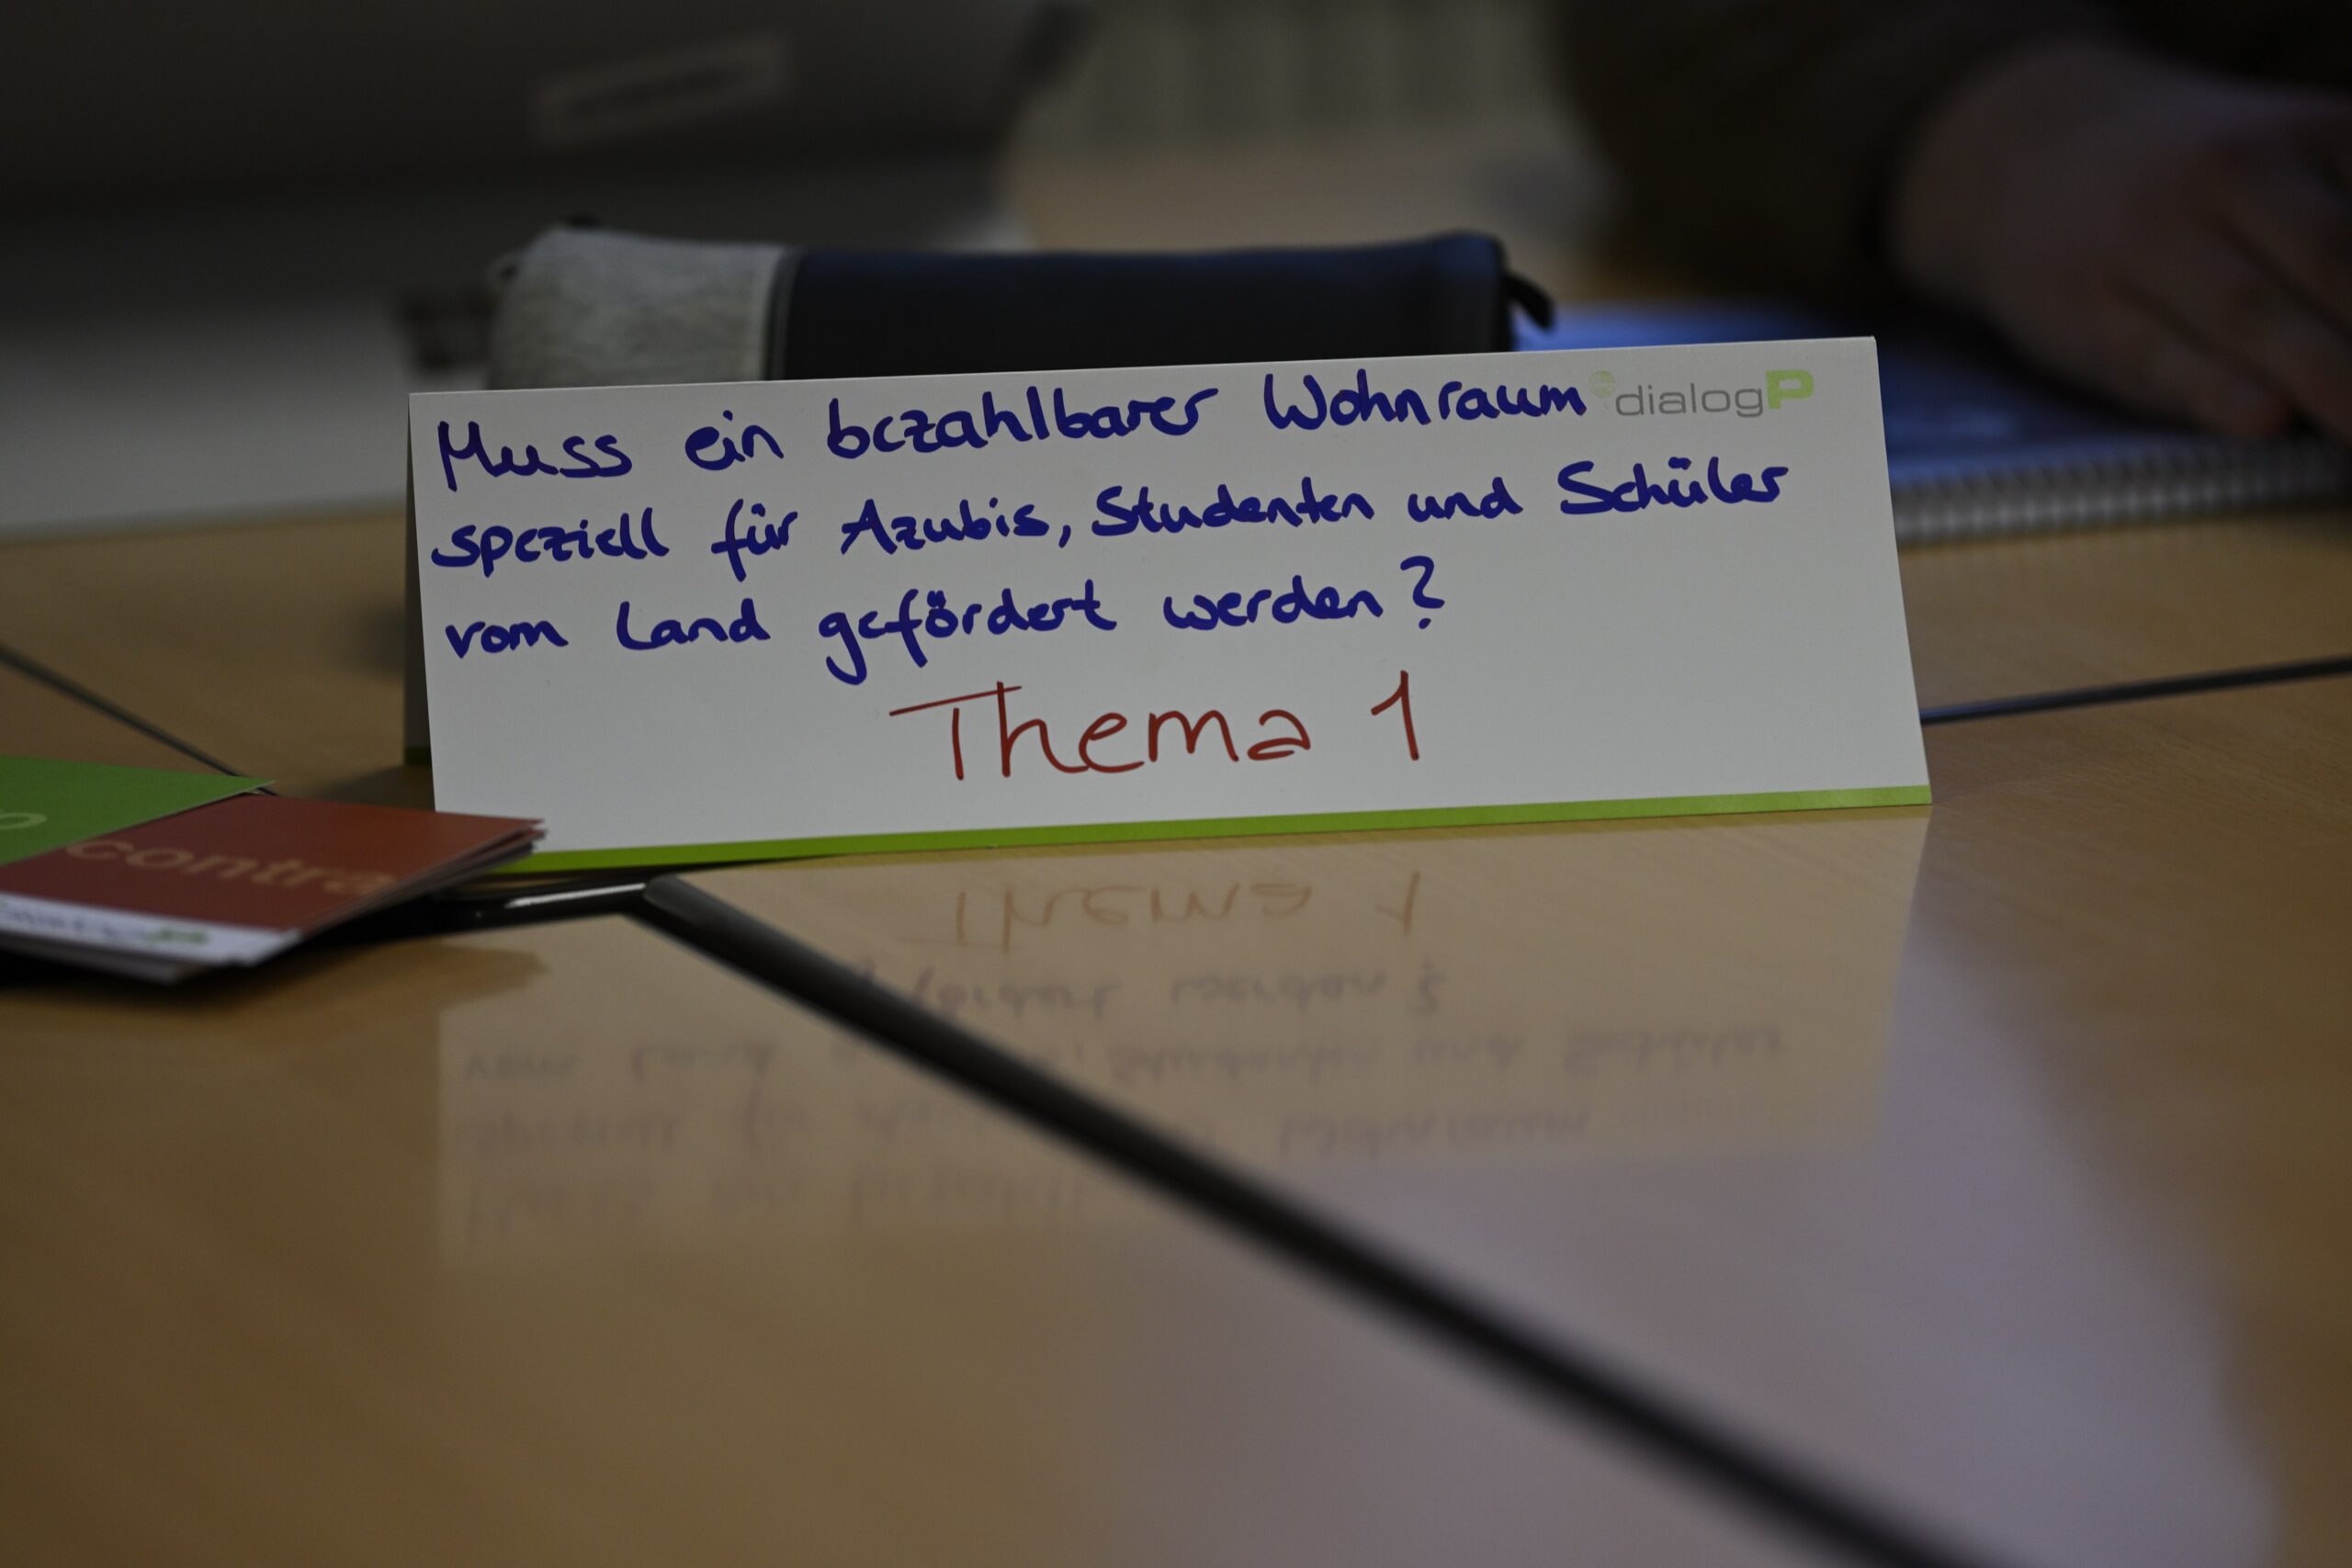 Muss ein bezahlbarer Wohnraum dialogP
speziell für Azubis, Studenten und Schüler
vom Land gefördert werden?
Thema 1
contra